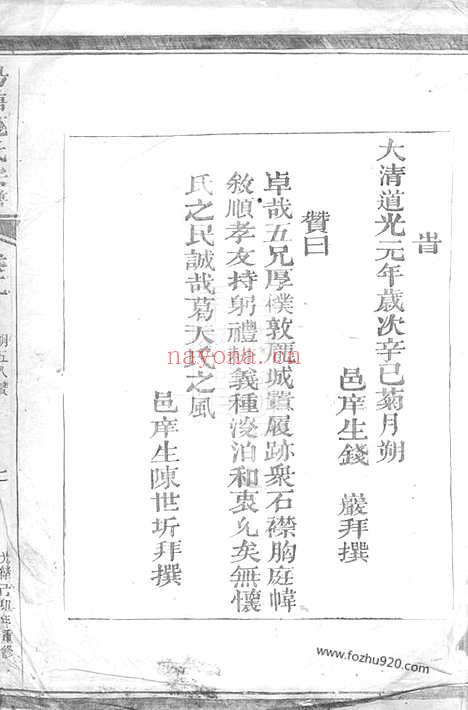 旹
大清道光元年歲次辛巳菊月朔
邑庠生錢　嚴拜撰
贊曰
卓哉五兄厚樸敦龐城置履跡衆石襟胸庭幃
敘順孝友持躬禮耕義種淡泊和衷允矣無懷
氏之民誠哉葛天氏之風
邑庠生陳世圻拜撰
nayona.cn
www.fozhu920.com